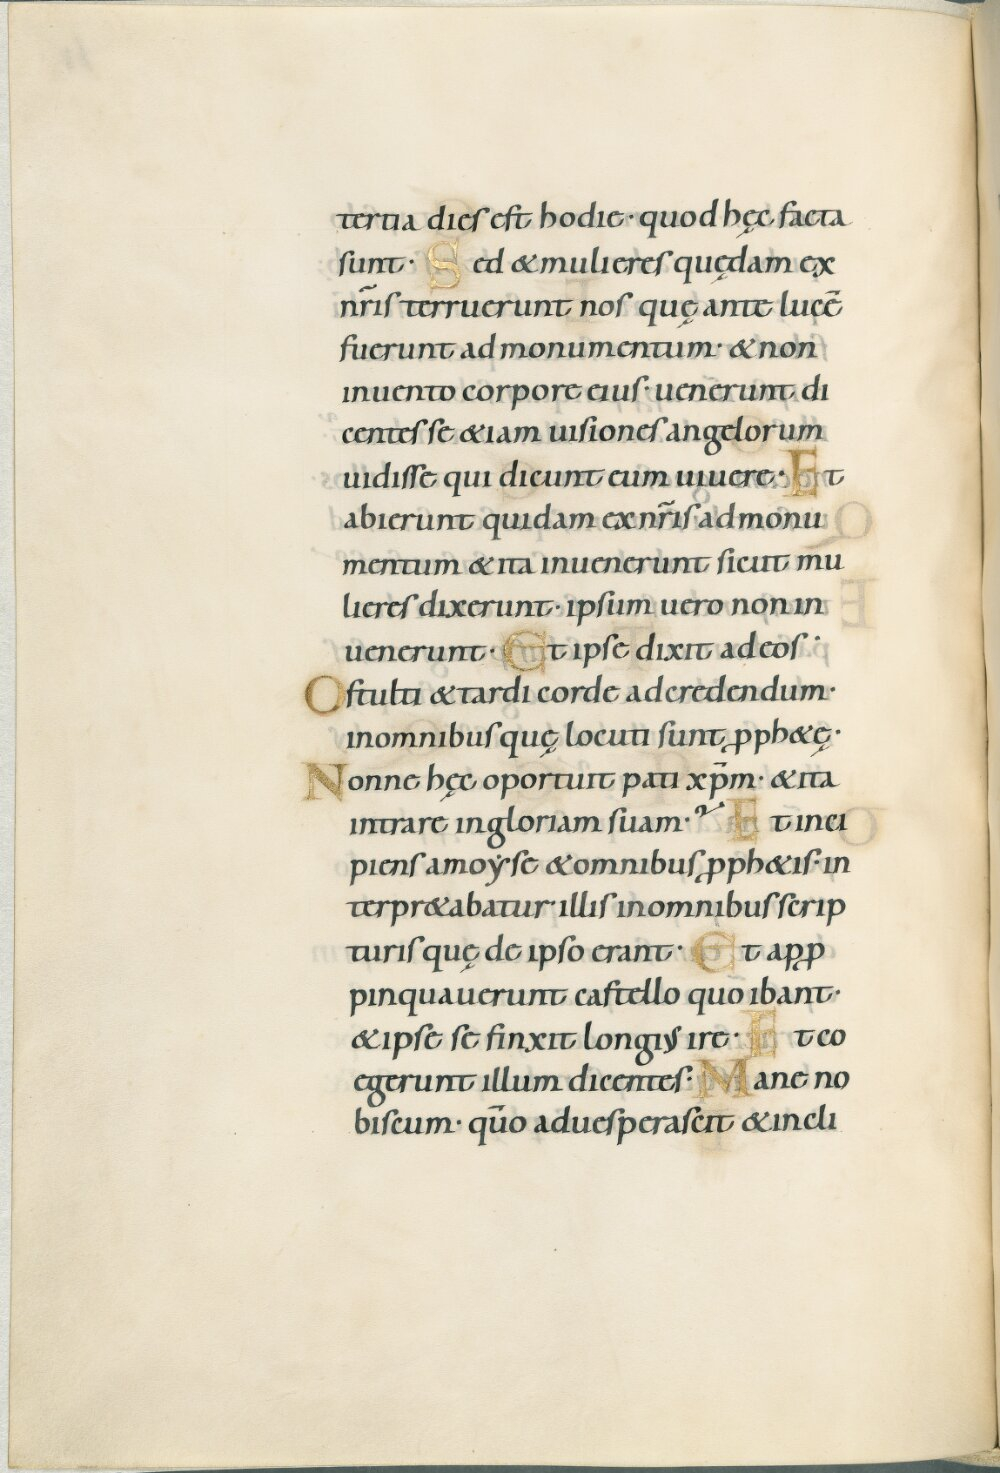 tertia dies est hodie· quod hęc facta
sunt· Sed & mulieres quędam ex
nr̃is terruerunt nos quę ante lucē
fuerunt ad monumentum· & non
inuento corpore eius· uenerunt di
centes se &iam uisiones angelorum
uidisse qui dicunt eum uiuere· Et
abierunt quidam ex nr̃is ad monu
mentum & ita inuenerunt sicut mu
lieres dixerunt· ipsum uero non in
uenerunt· Et ipse dixit ad eos·
O stulti & tardi corde ad credendum·
in omnibus quę locuti sunt ꝓph&ę·
Nonne hęc oportuit pati xp̄m· & ita
intrare in gloriam suam· Et inci
piens a moẏse & omnibus ꝓph&is· in
terpr&abatur illis in omnibus scrip
turis quę de ipso erant· Et apꝓ
pinquauerunt castello quo ibant·
& ipse se finxit longius ire· Et co
egerunt illum dicentes· Mane no
biscum· qm̄o aduesperascit & incli